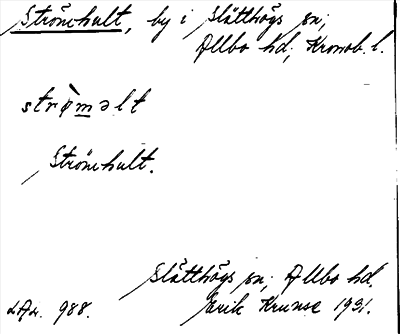 Strömhult, by i Slätthögs sn;
Allbo hd; Kronob. l.
strø̀məlt
Strömhult.
Slätthögs sn; Allbo hd.
Erik Krunse 1931.
988.